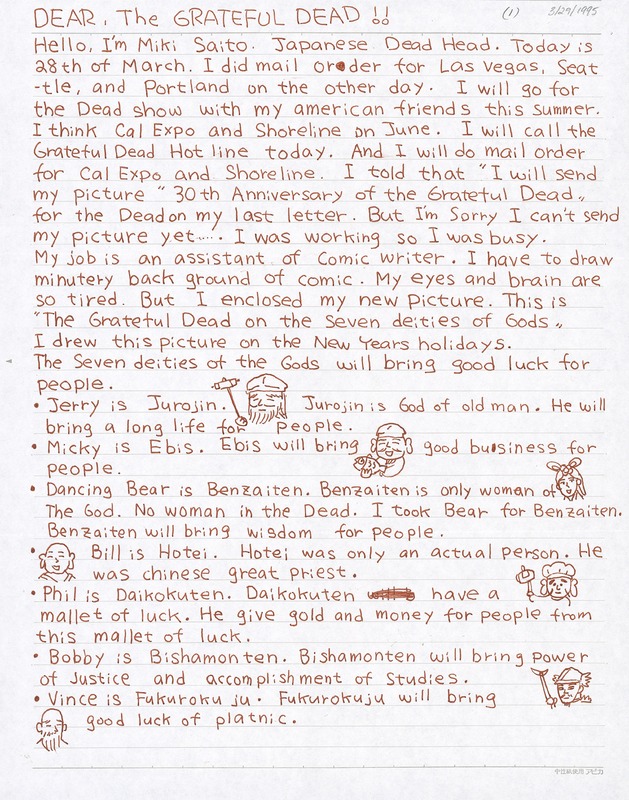 DEAR, The GRATEFUL DEAD !! (1) 3/29/1995
Hello, I'm Miki Saito. Japanese Dead Head. Today is
28th of March. I did mail order for Las vegas, Seat
-tle, and Portland on the other day. I will go for
the Dead show with my american friends this summer.
I think Cal Expo and Shoreline on June. I will call the
Grateful Dead Hot line today. And I will do mail order
for Cal Expo and Shoreline. I told that "I will send
my picture " 30th Anniversary of the Grateful Dead„
for the Dead on my last letter. But I'm Sorry I can't send
my picture yet..... I was working so I was busy.
My job is an assistant of Comic writer. I have to draw
minutery back ground of comic. My eyes and brain are
so tired. But I enclosed my new Picture. This is
"The Grateful Dead on the Seven deities of Gods„
I drew this picture on the New Years holidays.
The Seven deities of the Gods will bring good luck for
people.
• Jerry is Jurojin. Jurojin is God of old man. He will
bring a long life for people.
• Micky is Ebis. Ebis will bring good business for
people.
• Dancing Bear is Benzaiten. Benzaiten is only woman of
The God. No woman in the Dead. I took Bear for Benzaiten.
Benzaiten will bring wisdom for people.
• Bill is Hotei. Hotei was only an actual person. He
was chinese great priest.
• Phil is Daikokuten. Daikokuten have a
mallet of luck. He give gold and money for people from
this mallet of luck.
• Bobby is Bishamonten. Bishamonten will bring power
of Justice and accomplishment of Studies.
• Vince is Fukuroku ju. Fukurokuju will bring
good luck of platnic.